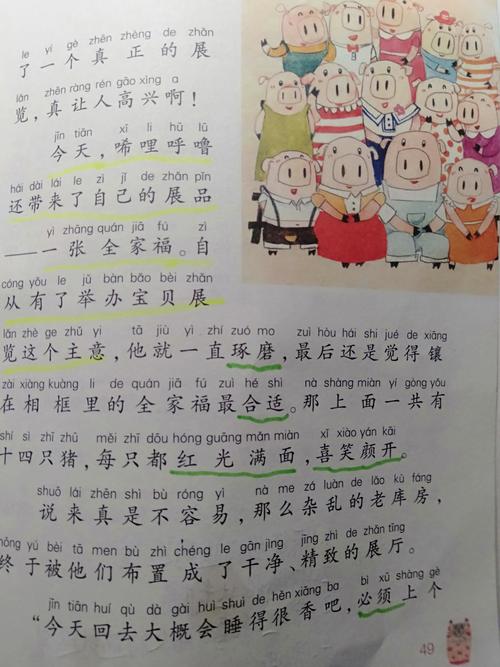 le yí gè zhēn zhèng de zhǎn
了一个真正的展
lǎn zhēn ràng rén gāo xìng a
览，真让人高兴啊！
jīn tiān xī li hū lū
今天，唏哩呼噜
hái dài lái le zì jǐ de zhǎn pǐn
还带来了自己的展品
yì zhāng quán jiā fú zì
——一张全家福。自
cóng yǒu le jǔ bàn bǎo bèi zhǎn
从有了举办宝贝展
lǎn zhè ge zhǔ yi tā jiù yì zhí zuó mo zuì hòu hái shi jué de xiāng
览这个主意，他就一直琢磨，最后还是觉得镶
zài xiàng kuàng li de quán jiā fú zuì hé shì nà shàng miàn yí gòng yǒu
在相框里的全家福最合适。那上面一共有
shí sì zhī zhū měi zhī dōu hóng guāng mǎn miàn xǐ xiào yán kāi
十四只猪，每只都红光满面，喜笑颜开。
shuō lái zhēn shì bù róng yì nà me zá luàn de lǎo kù fáng
说来真是不容易，那么杂乱的老库房，
zhōng yú bèi tā men bù zhì chéng le gān jìng jīng zhì de zhǎn tīng
终于被他们布置成了干净、精致的展厅。
jīn tiān huí qù dà gài huì shuì de hěn xiāng ba bì xū shàng gè
“今天回去大概会睡得很香吧，必须上个
49